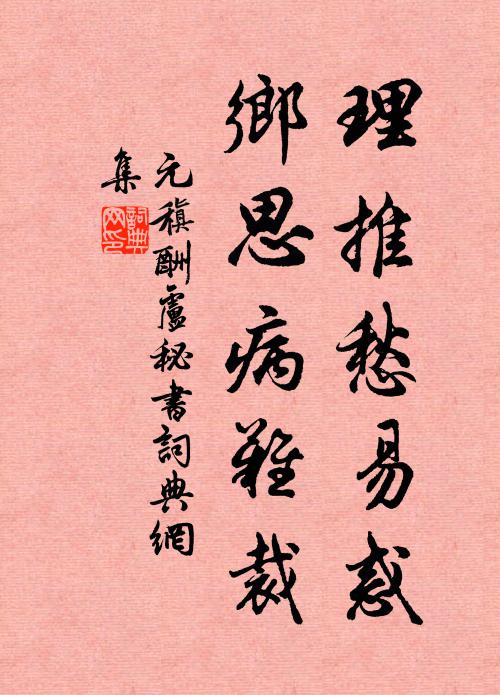 理推愁易惑
鄉思病難裁
元稹酬盧秘書詞典網
集
詞典網印